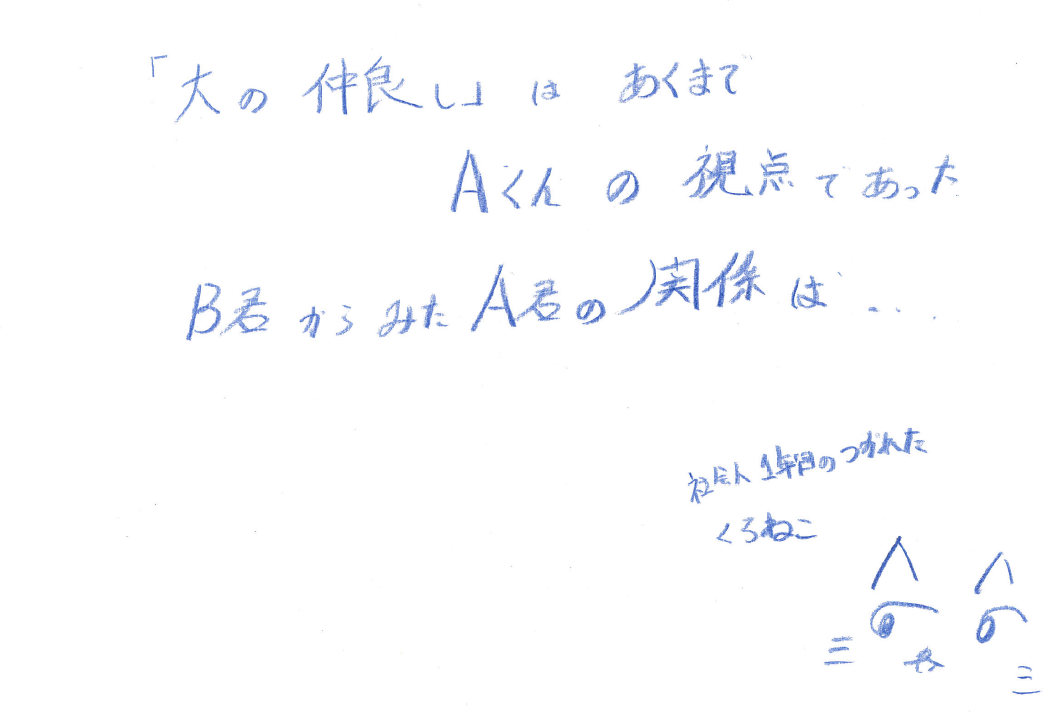 「大の仲良し」は あくまで
Aくんの視点であった
B君からみたA君の関係は...
社会人1年目のつかれた
くろねこ